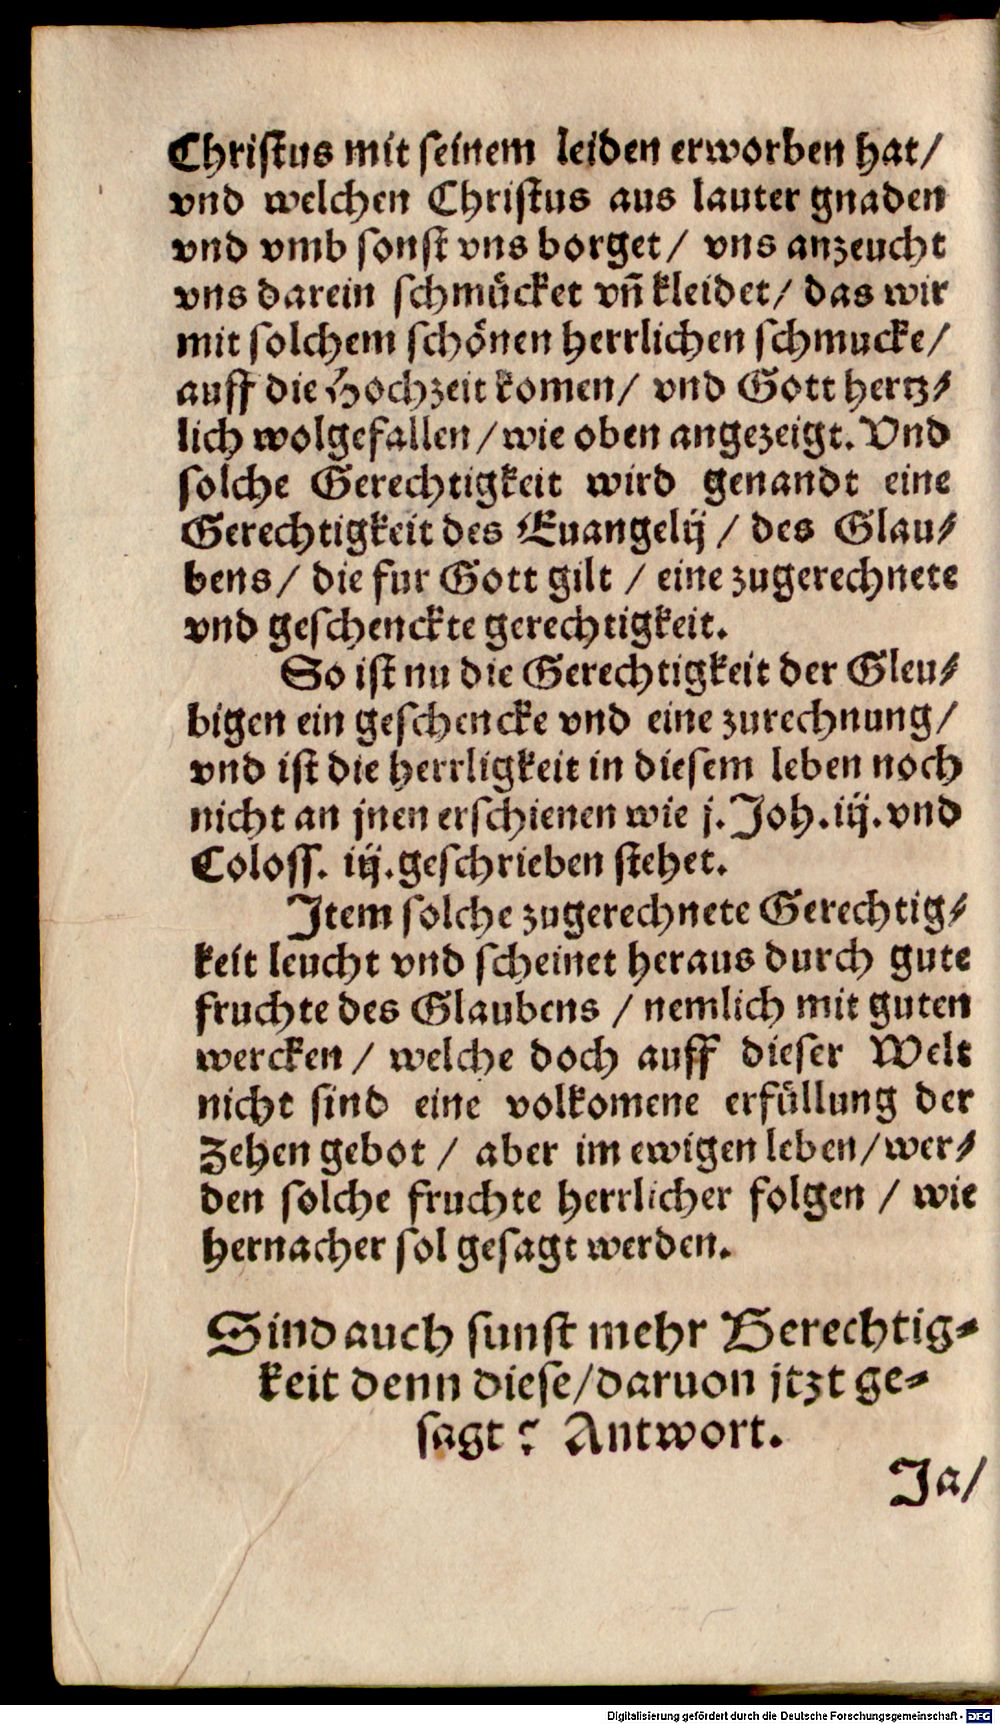 Christus mit seinem leiden erworben hat/
vnd welchen Christus aus lauter gnaden
vnd vmb sonst vns borget/ vns anzeucht
vns darein schmücket vn̄ kleidet/ das wir
mit solchem schönen herrlichen schmucke/
auff die Hochzeit komen/ vnd Gott hertz-
lich wolgefallen/ wie oben angezeigt. Vnd
solche Gerechtigkeit wird genandt eine
Gerechtigkeit des Euangelij/ des Glau-
bens/ die fur Gott gilt/ eine zugerechnete
vnd geschenckte gerechtigkeit.
So ist nu die Gerechtigkeit der Gleu-
bigen ein geschencke vnd eine zurechnung/
vnd ist die herrligkeit in diesem leben noch
nicht an jnen erschienen wie j. Joh. iij. vnd
Coloss. iij. geschrieben stehet.
Item solche zugerechnete Gerechtig-
keit leucht vnd scheinet heraus durch gute
fruchte des Glaubens/ nemlich mit guten
wercken/ welche doch auff dieser Welt
nicht sind eine volkomene erfüllung der
Zehen gebot/ aber im ewigen leben/ wer-
den solche fruchte herrlicher folgen/ wie
hernacher sol gesagt werden.
Sind auch sunst mehr Gerechtig-
keit denn diese/ daruon jtzt ge-
sagt? Antwort.
Ja/
Digitalisierung gefördert durch die Deutsche Forschungsgemeinschaft - DFG